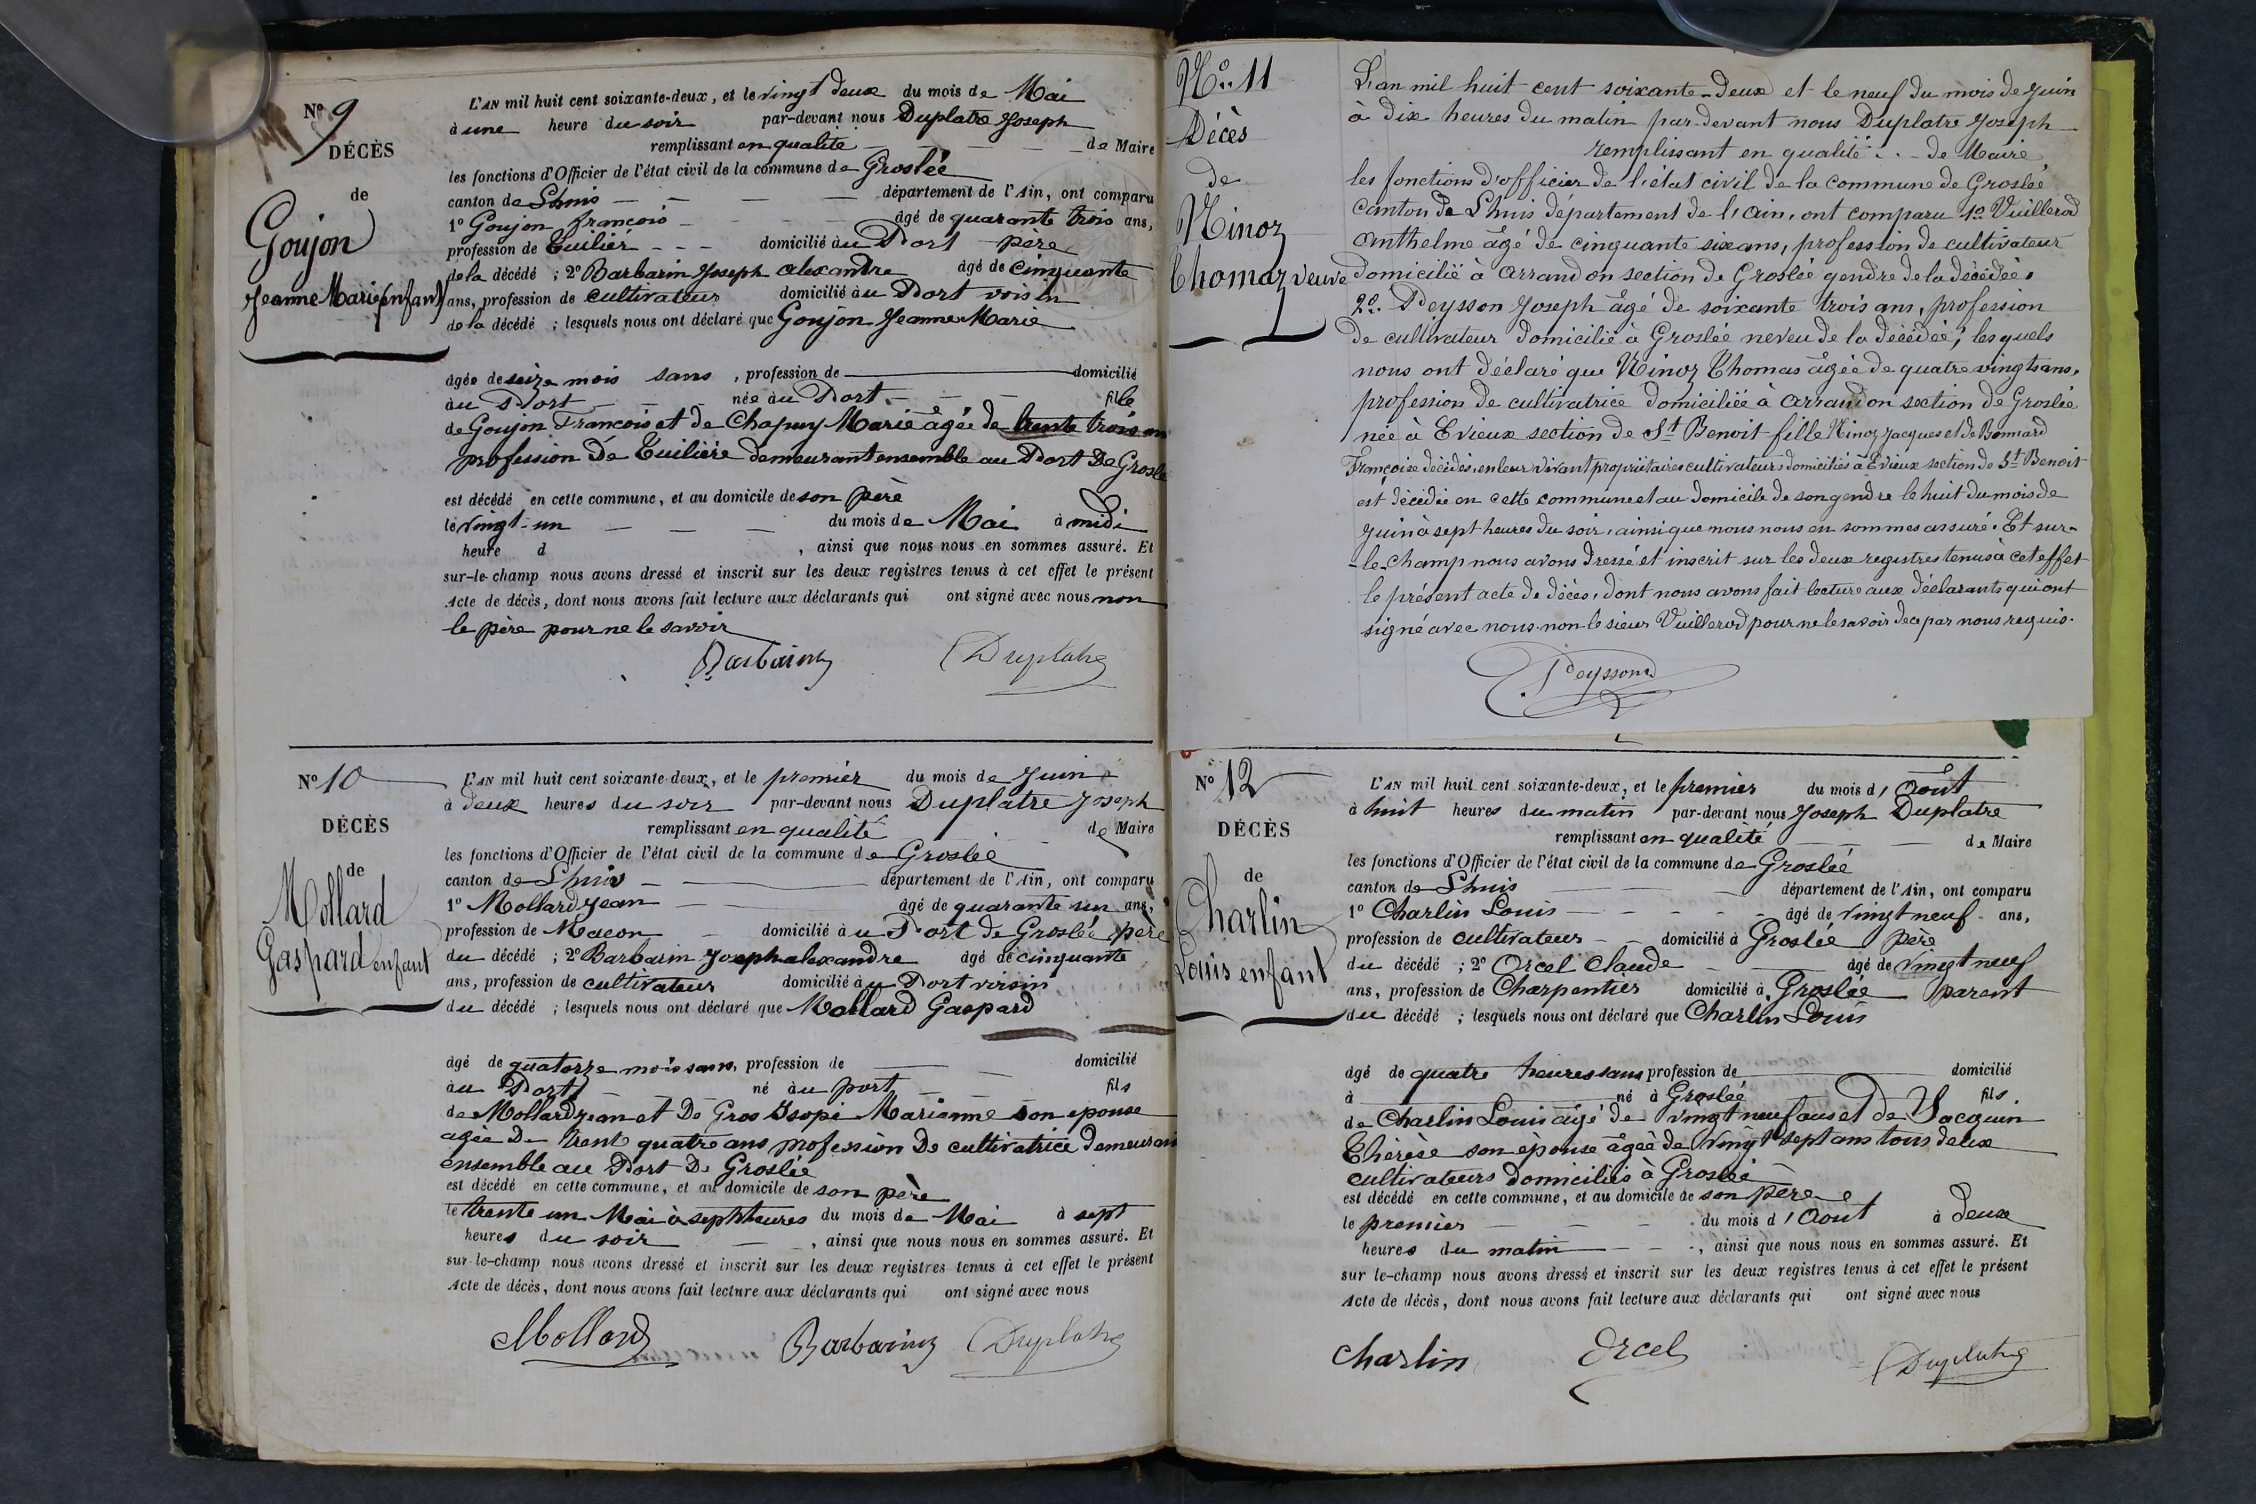 N° 9
DÉCÈS
de
Goujon
Jeanne Marie (enfant)
L'AN mil huit cent soixante-deux, et le vingt deux du mois de Mai
à une heure du soir par-devant nous Duplatre Joseph
remplissant en qualité de Maire
les fonctions d'Officier de l'état civil de la commune de Groslée
canton de Lhuis département de l'Ain, ont comparu
1° Goujon françois âgé de quarante trois ans,
profession de Tuilier domicilié au Port père
de la décédé ; 2° Barbarin Joseph alexandre âgé de cinquante
ans, profession de cultivateur domicilié au Port voisin
de la décédé ; lesquels nous ont déclaré que Goujon Jeanne Marie
âgée de seize mois sans , profession de domicilié
au Port née au Port fille
de Goujon François et de Chapuy Marie âgée de trente trois an
profession de Tuilière demeurant ensemble au Port De Groslé
est décédé en cette commune, et au domicile de son père
le vingt-un du mois de Mai à midi
heure d , ainsi que nous nous en sommes assuré. Et
sur-le-champ nous avons dressé et inscrit sur les deux registres tenus à cet effet le présent
Acte de décès, dont nous avons fait lecture aux déclarants qui ont signé avec nous non
le père pour ne le savoir
Barbarin Duplatre
N° 10
DÉCÈS
de
Mollard
Gaspard enfant
L'AN mil huit cent soixante-deux, et le premier du mois de Juin
à deux heures du soir par-devant nous Duplatre Joseph
remplissant en qualité de Maire
les fonctions d'Officier de l'état civil de la commune de Groslée
canton de Lhuis département de l'Ain, ont comparu
1° Mollard Jean âgé de quarante un ans,
profession de Macon domicilié au Port de Groslée père
du décédé ; 2° Barbarin Joseph alexandre âgé de cinquante
ans, profession de cultivateur domicilié au Port voisin
du décédé ; lesquels nous ont déclaré que Mollard Gaspard
âgé de quatorze mois sans, profession de domicilié
au Port né au port fils
de Mollard Jean et De Gros Isopi Marianne son epouse
agée De trente quatre ans profession De cultivatrice demeurant
ensemble au Port De Groslée
est décédé en cette commune, et au domicile de son père
le trente un Mai à sept heures du mois de Mai à sept
heures du soir , ainsi que nous nous en sommes assuré. Et
sur-le-champ nous avons dressé et inscrit sur les deux registres tenus à cet effet le présent
Acte de décès, dont nous avons fait lecture aux déclarants qui ont signé avec nous
Mollard Barbarin Duplatre
N° 11
Décès
de
Ninoz
Thomaz veuve
L'an mil huit cent soixante-deux et le neuf du mois de Juin
à dix heures du matin par-devant nous Duplatre Joseph
remplissant en qualité de Maire
les fonctions d'officier de l'état civil de la commune de Groslée
canton de Lhuis département de l'Ain, ont comparu 1° Vuillerod
Anthelme âgé de cinquante six ans, profession de cultivateur
domicilié à Arrandon section de Groslée gendre de la décédée.
2° Peysson Joseph âgé de soixante trois ans, profession
de cultivateur domicilié à Groslée neveu de la décédée, lesquels
nous ont déclaré que Ninoz Thomas âgée de quatre vingts ans,
profession de cultivatrice domiciliée à Arrandon section de Groslée
née à Evieux section de St Benoit fille Ninoz Jacques et de Bonnard
Françoise décédés, en leur vivant propriétaires cultivateurs domiciliés à Evieux section de St Benoit
est décédée en cette commune et au domicile de son gendre le huit du mois de
Juin à sept heures du soir, ainsi que nous nous en sommes assuré. Et sur-
-le-champ nous avons dressé et inscrit sur les deux registres tenus à cet effet
le présent acte de décès, dont nous avons fait lecture aux déclarants qui ont
signé avec nous non le sieur Vuillerod pour ne le savoir de ce par nous requis.
Peysson
N° 12
DÉCÈS
de
Charlin
Louis enfant
L'AN mil huit cent soixante-deux, et le premier du mois d'Août
à huit heures du matin par-devant nous Joseph Duplatre
remplissant en qualité de Maire
les fonctions d'Officier de l'état civil de la commune de Groslée
canton de Lhuis département de l'Ain, ont comparu
1° Charlin Louis âgé de vingt neuf ans,
profession de cultivateur domicilié à Groslée père
du décédé ; 2° Orcel Claude âgé de vingt neuf
ans, profession de Charpentier domicilié à Groslée parent
du décédé ; lesquels nous ont déclaré que Charlin Louis
âgé de quatre heures sans profession de domicilié
à né à Groslée fils
de Charlin Louis âgé de vingt neuf ans et de Jacquin
Thérèse son épouse âgée de vingt sept ans tous deux
cultivateurs domiciliés à Groslée
est décédé en cette commune, et au domicile de son père
le premier du mois d'Aout à deux
heures du matin , ainsi que nous nous en sommes assuré. Et
sur le-champ nous avons dressé et inscrit sur les deux registres tenus à cet effet le présent
Acte de décès, dont nous avons fait lecture aux déclarants qui ont signé avec nous
Charlin Orcel Duplatre